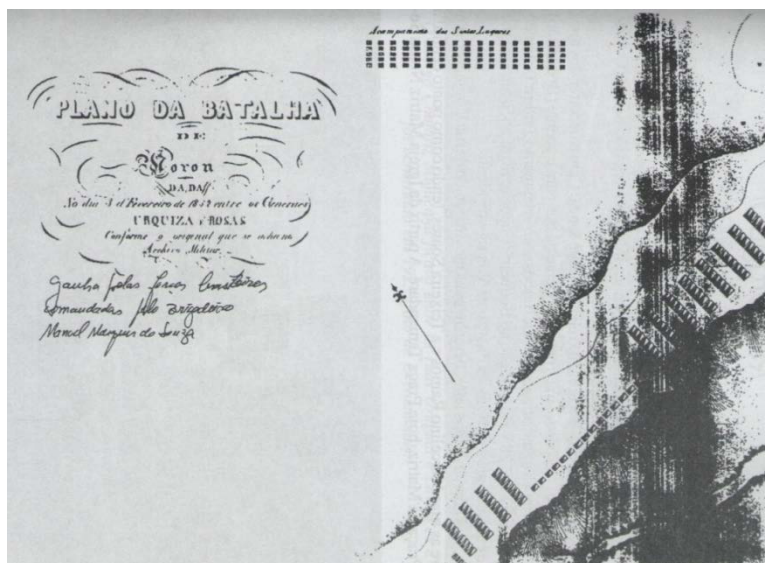 Acampamento dos Santos Lugares
PLANO DA BATALHA
DE
Moron
DADA
No dia 3 d Fevereiro de 1852 entre os Generaes
URQUIZA e ROSAS
Conforme o original que se acha no
Archivo Militar
ganha pelas forças brasileiras
comandadas pelo brigadeiro
Manoel Marques de Souza